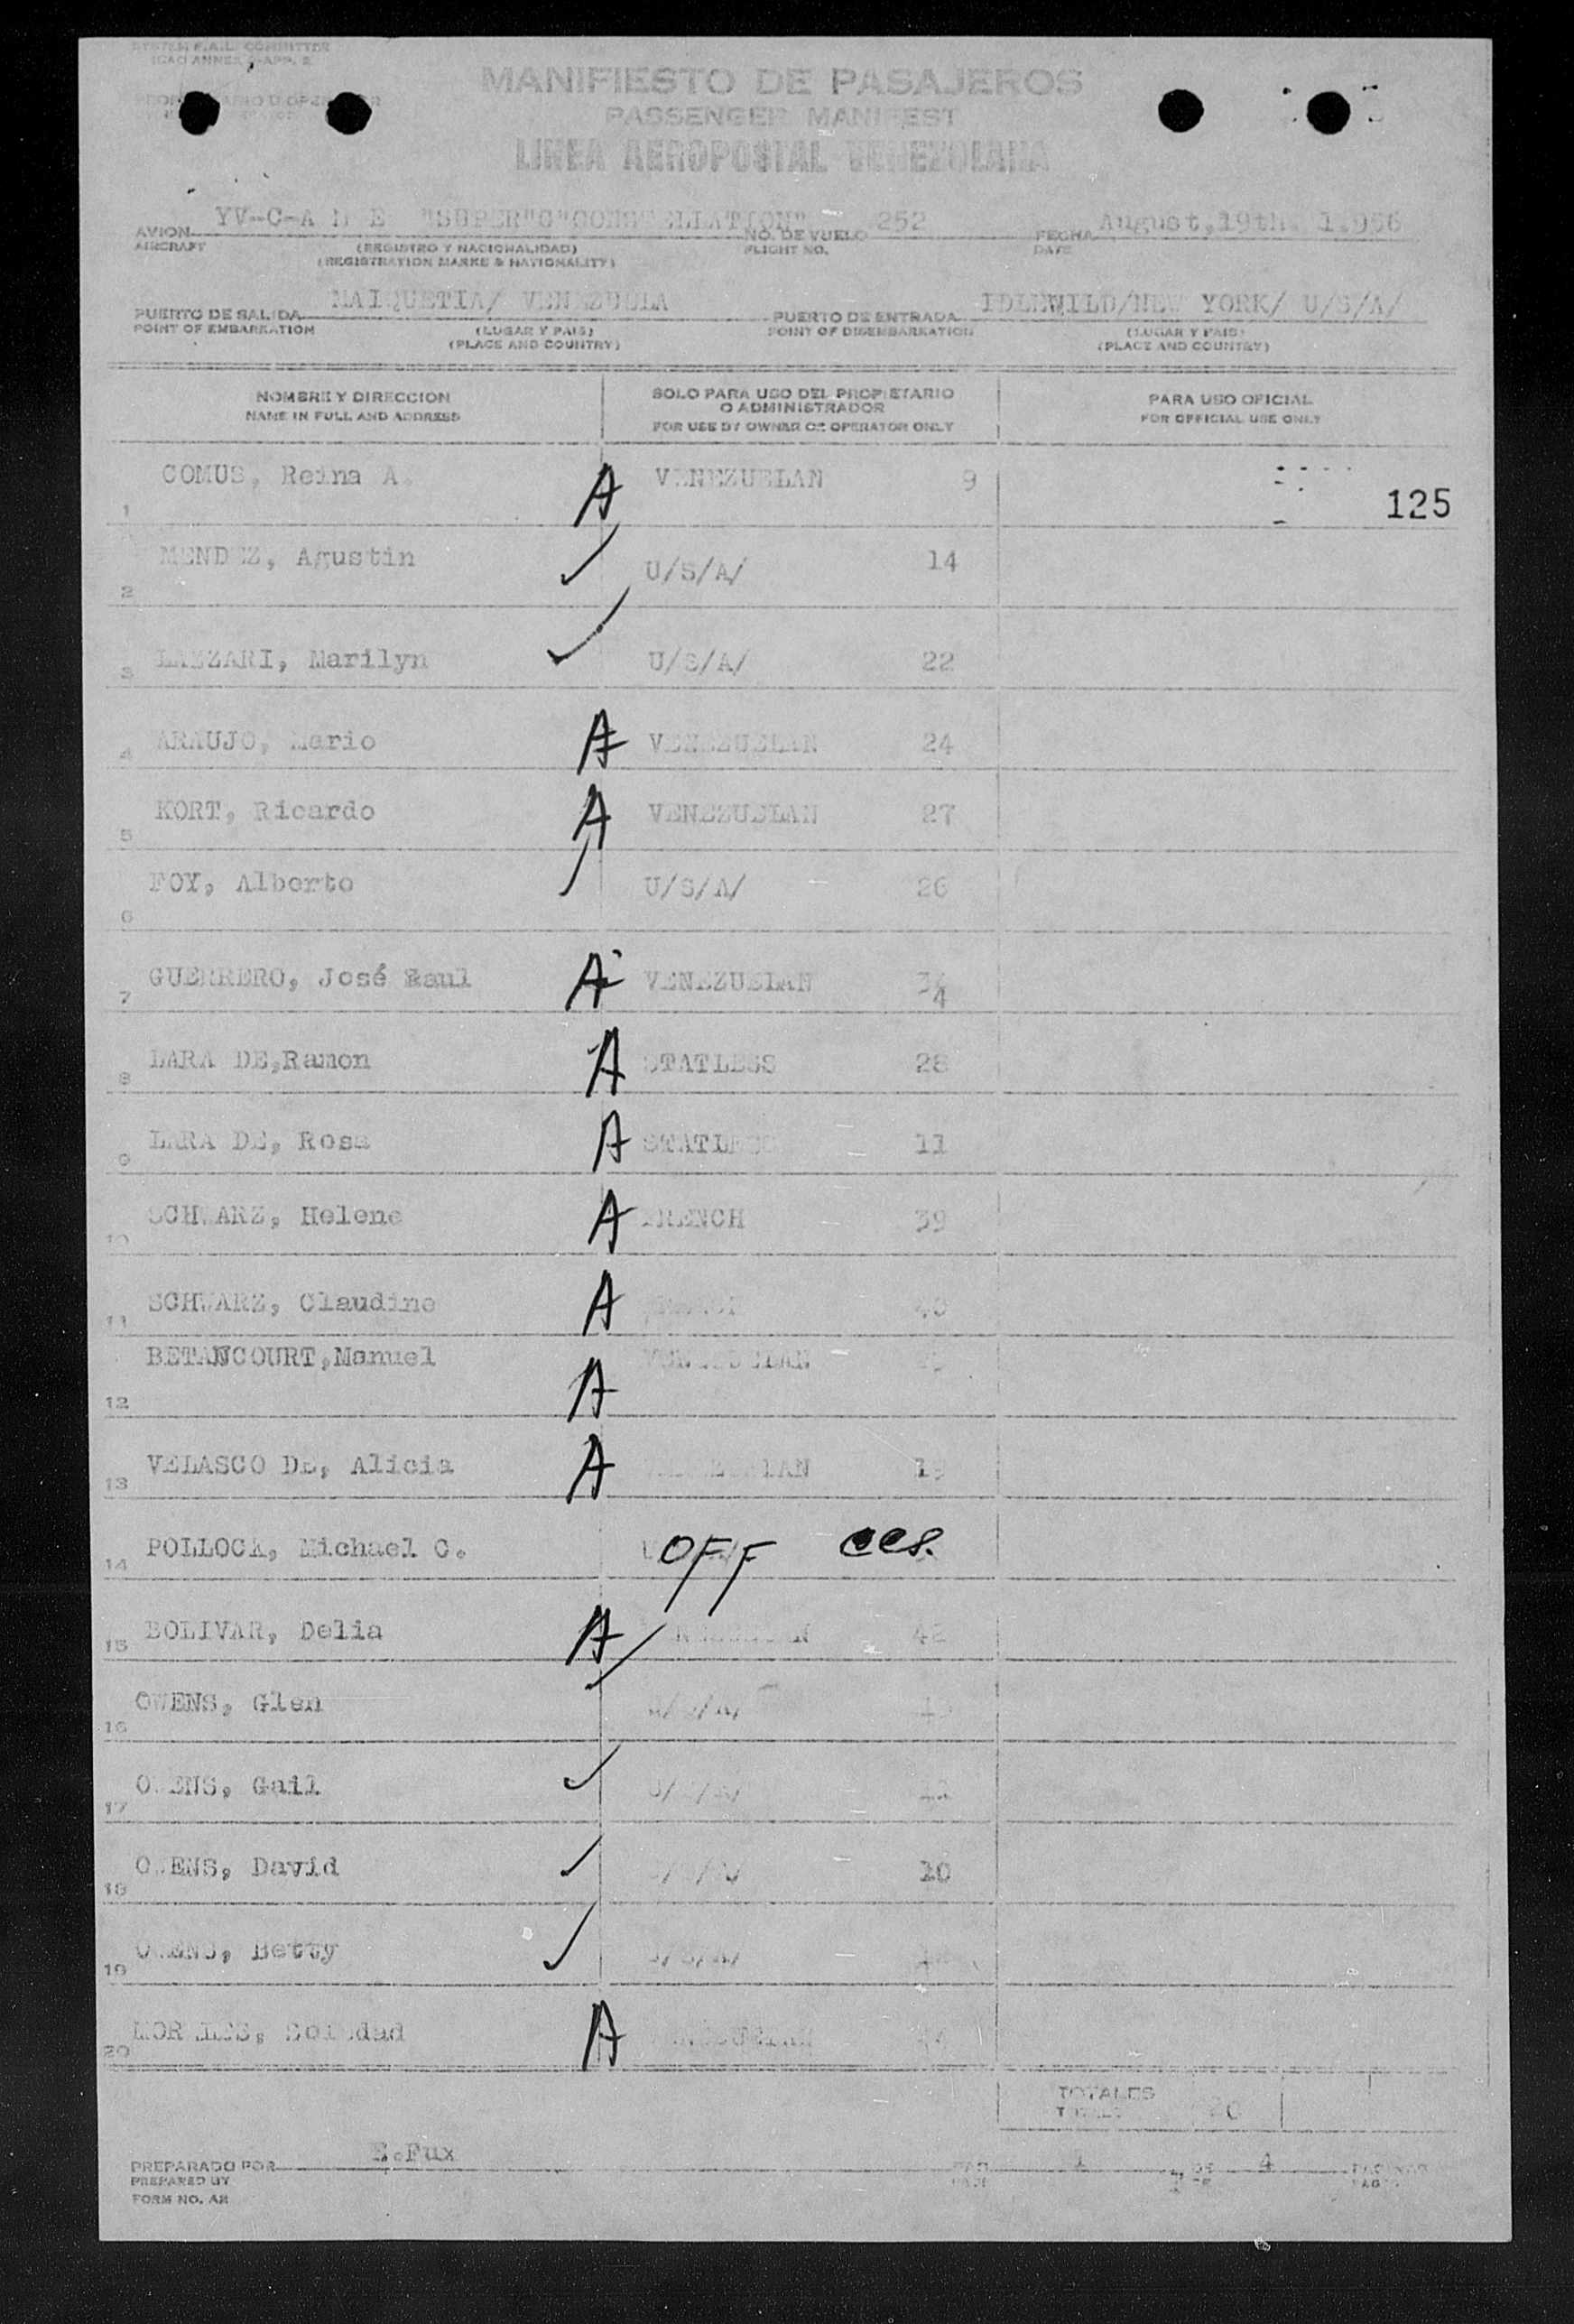 SYSTEM F.A.L. COMMITTEE
ICAO ANNEX 9-APP. 2
MANIFIESTO DE PASAJEROS
PASSENGER MANIFEST
LINEA AEROPOSTAL VENEZOLANA
AVION YV-C-A N E "SUPER"G"CONSTELLATION" NO. DE VUELO 252 FECHA August,19th. 1.956
AIRCRAFT (REGISTRO Y NACIONALIDAD) FLIGHT NO. DATE
(REGISTRATION MARKS & NATIONALITY)
PUERTO DE SALIDA MAIQUETIA/ VENEZUELA PUERTO DE ENTRADA IDLEWILD/NEW YORK/ U/S/A/
POINT OF EMBARKATION (LUGAR Y PAIS) POINT OF DISEMBARKATION (LUGAR Y PAIS)
(PLACE AND COUNTRY) (PLACE AND COUNTRY)
NOMBRE Y DIRECCION SOLO PARA USO DEL PROPIETARIO O ADMINISTRADOR PARA USO OFICIAL
NAME IN FULL AND ADDRESS FOR USE BY OWNER OR OPERATOR ONLY FOR OFFICIAL USE ONLY
1 COMUS, Reina A. A VENEZUELAN 9 125
2 MENDEZ, Agustin U/S/A/ 14
3 LAZZARI, Marilyn U/S/A/ 22
4 ARAUJO, Mario A VENEZUELAN 24
5 KORT, Ricardo A VENEZUELAN 27
6 FOY, Alberto U/S/A/ 26
7 GUERRERO, José Raul A VENEZUELAN 34
8 LARA DE,Ramon A STATLESS 28
9 LARA DE, Rosa A STATLESS 11
10 SCHWARZ, Helene A FRENCH 39
11 SCHWARZ, Claudine A 40
12 BETANCOURT,Manuel A VENEZUELAN
13 VELASCO DE, Alicia A VENEZUELAN
14 POLLOCK, Michael C. OFF ccs.
15 BOLIVAR, Delia A VENEZUELAN 42
16 OWENS, Glen U/S/A/
17 OWENS, Gail U/S/A/
18 OWENS, David U/S/A/ 10
19 OWENS, Betty U/S/A/
20 MORALES, Soledad A VENEZUELAN
TOTALES 20
PREPARADO POR E.Fux PAG. 1 DE 4 PAGINAS
PREPARED BY
FORM NO. AR